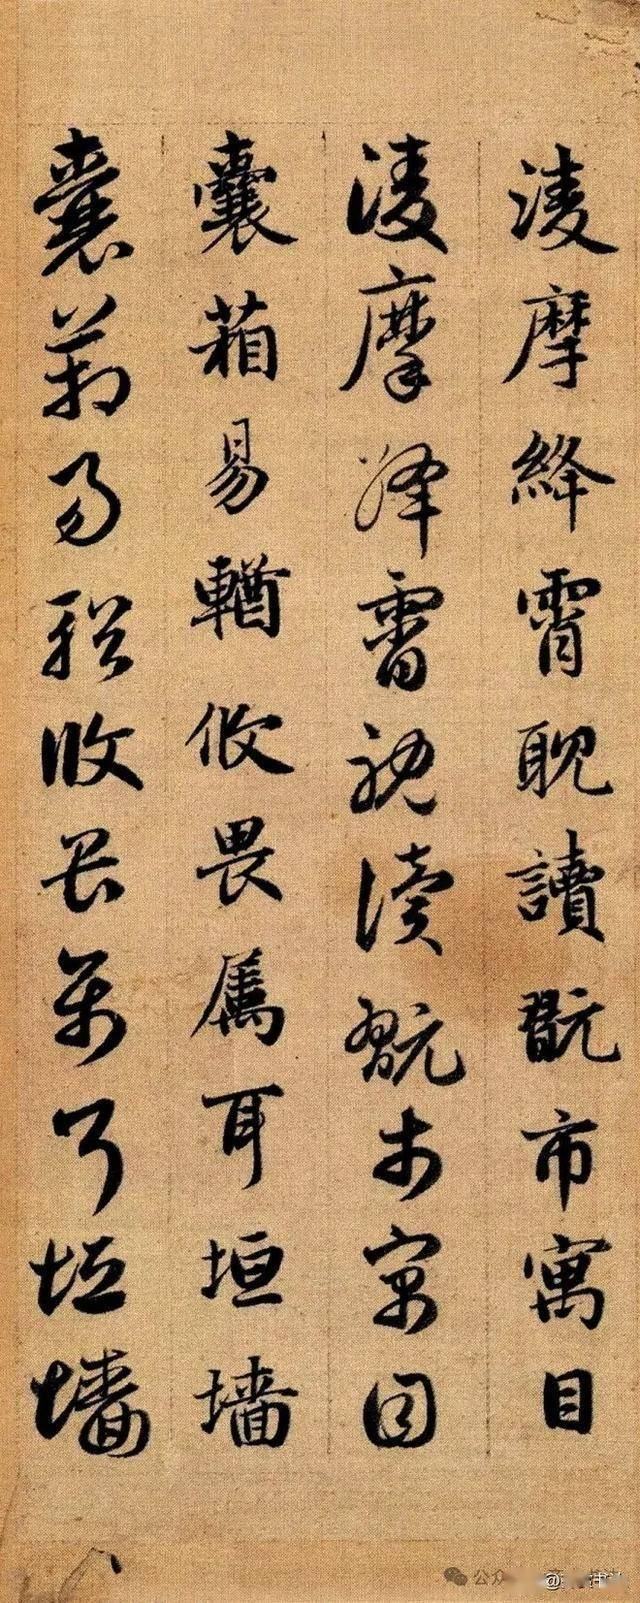 淩摩絳霄耽讀翫市寓目
淩摩絳霄耽讀翫市寓目
囊葙易輶攸畏屬耳垣墻
囊葙易輶攸畏屬耳垣墻
公众